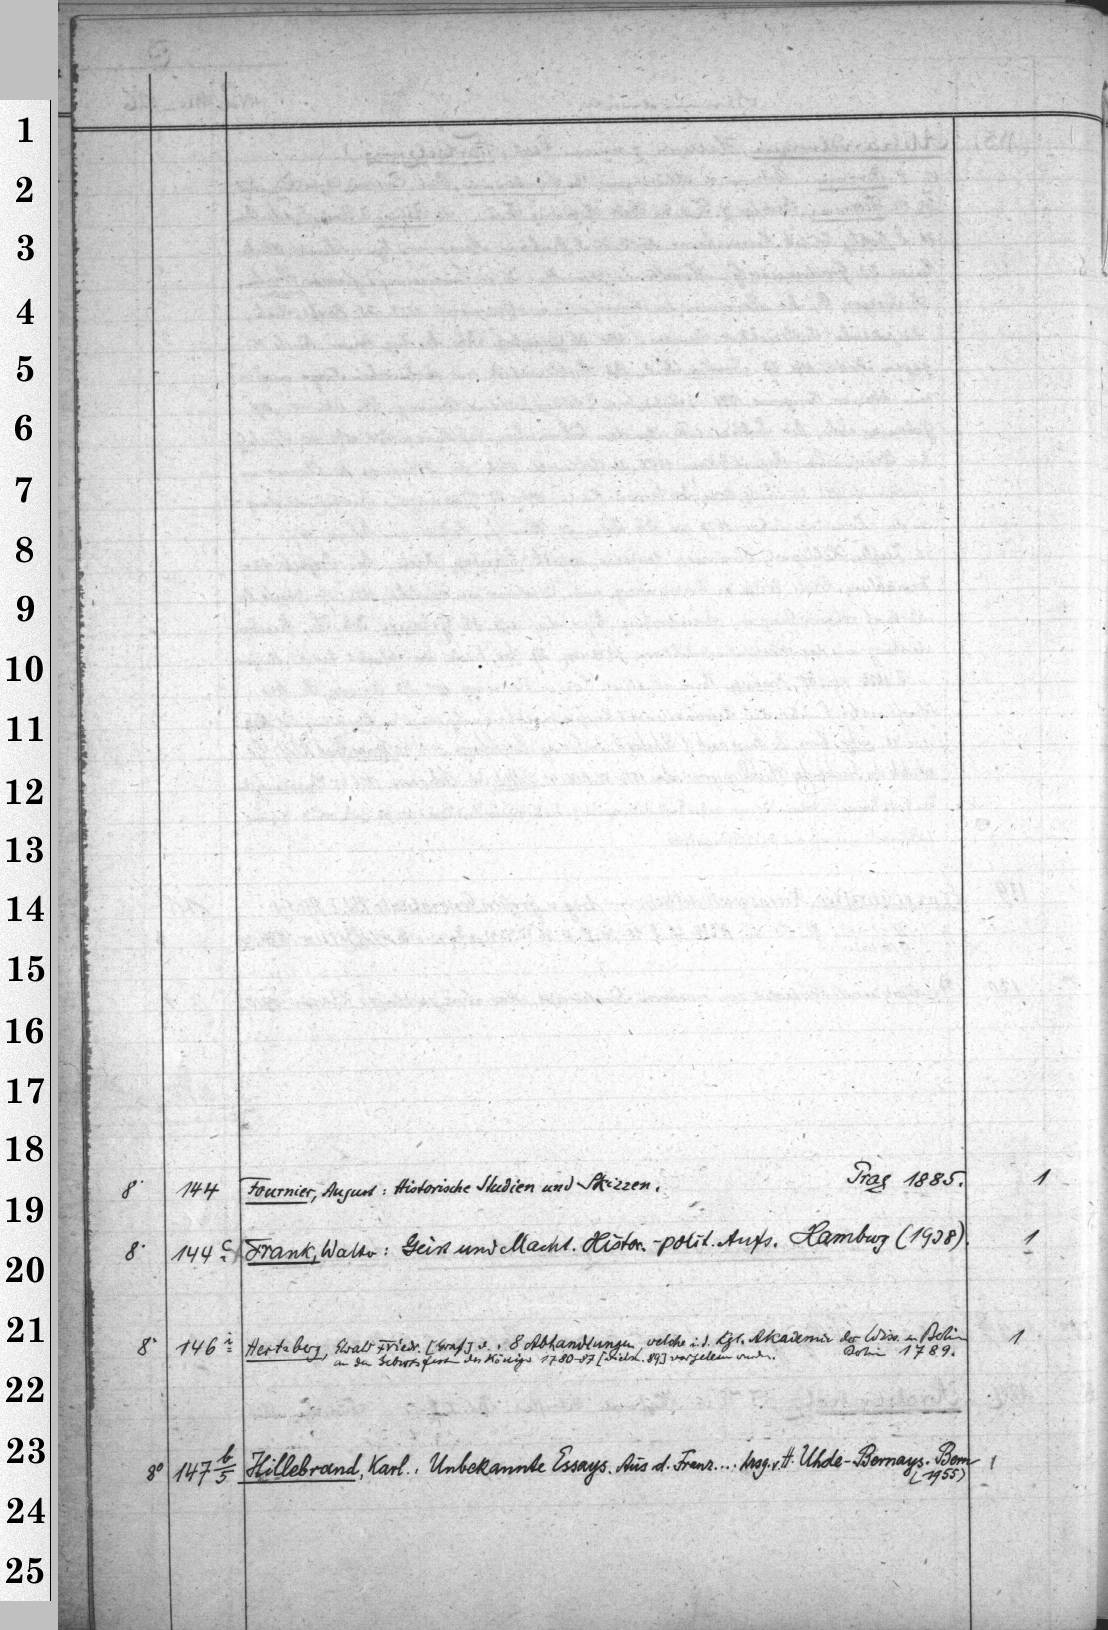 1
2
3
4
5
6
7
8
9
10
11
12
13
14
15
16
17
18
19
20
21
22
23
24
25
8° 144 Fournier, August: Historische Studien und Skizzen. Prag 1885. 1
8° 144 c Frank, Walter: Geist und Macht. Histor.-polit. Aufs. Hamburg (1938). 1
8° 146 i Hertzberg, Ewald Friedr. [Graf] v.: 8 Abhandlungen, welche i. d. Kgl. Akademie der Wiss. zu Berlin 1
an den Geburtsfesten des Königs 1780-87 [vielm. 89] vorgelesen wurden. Berlin 1789.
8° 147 b/5 Hillebrand, Karl.: Unbekannte Essays. Aus d. Franz. ... hrsg. v. H. Uhde-Bernays. Bern 1
(1955)